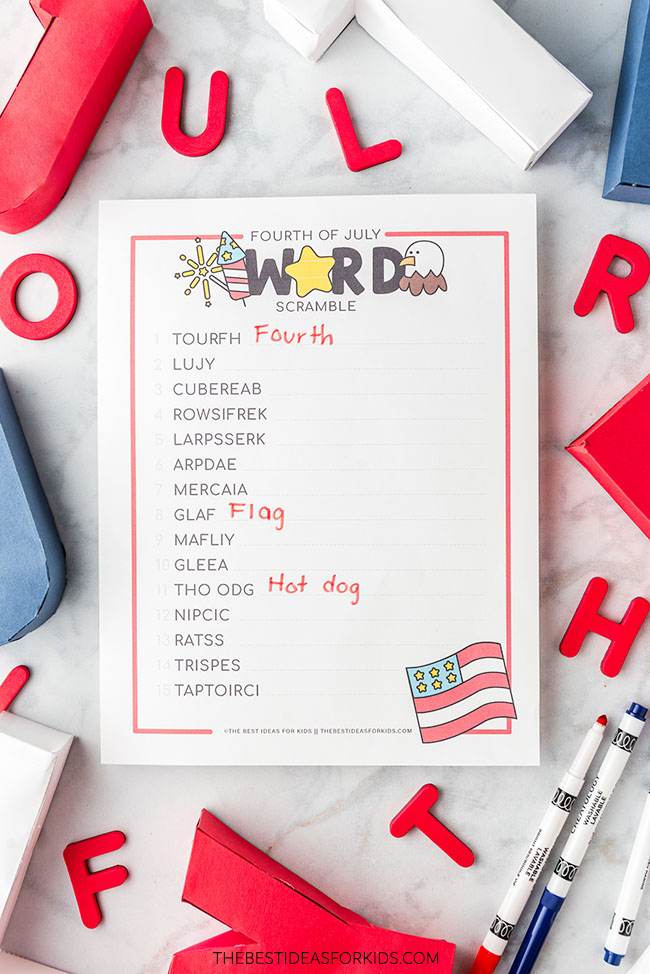 U L
O
R
FOURTH OF JULY
WORD
SCRAMBLE
1 TOURFH Fourth
2 LUJY
3 CUBEREAB
4 ROWSIFREK
5 LARPSSERK
6 ARPDAE
7 MERCAIA
8 GLAF Flag
9 MAFLIY
10 GLEEA
11 THO ODG Hot dog
12 NIPCIC
13 RATSS
14 TRISPES
15 TAPTOIRCI
©THE BEST IDEAS FOR KIDS || THEBESTIDEASFORKIDS.COM
H
T
F
CREATOLOGY
WASHABLE
LAVABLE
WASHABLE
LAVABLE
THEBESTIDEASFORKIDS.COM